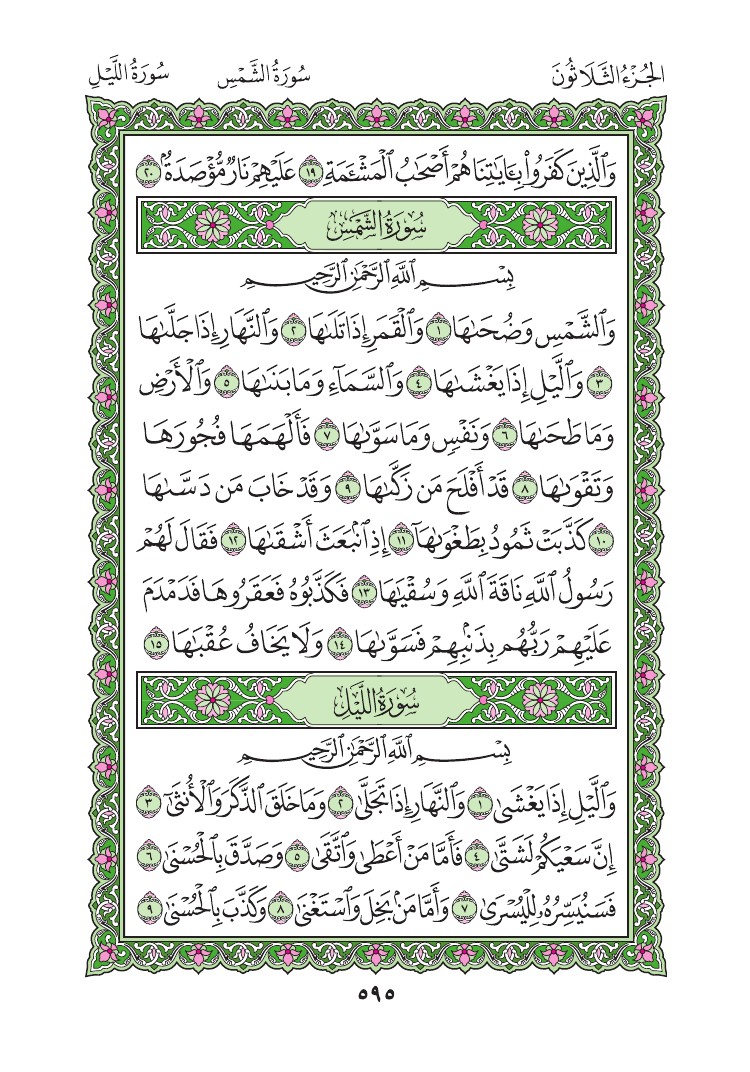 الجُزْءُ الثَّلَاثُونَ سُورَةُ الشَّمْسِ سُورَةُ اللَّيْلِ
وَٱلَّذِينَ كَفَرُوا۟ بِـَٔايَـٰتِنَا هُمْ أَصْحَـٰبُ ٱلْمَشْـَٔمَةِ ١٩ عَلَيْهِمْ نَارٌ مُّؤْصَدَةٌۢ ٢٠
سُورَةُ الشَّمْسِ
بِسْمِ ٱللَّهِ ٱلرَّحْمَـٰنِ ٱلرَّحِيمِ
وَٱلشَّمْسِ وَضُحَىٰهَا ١ وَٱلْقَمَرِ إِذَا تَلَىٰهَا ٢ وَٱلنَّهَارِ إِذَا جَلَّىٰهَا
٣ وَٱلَّيْلِ إِذَا يَغْشَىٰهَا ٤ وَٱلسَّمَآءِ وَمَا بَنَىٰهَا ٥ وَٱلْأَرْضِ
وَمَا طَحَىٰهَا ٦ وَنَفْسٍ وَمَا سَوَّىٰهَا ٧ فَأَلْهَمَهَا فُجُورَهَا
وَتَقْوَىٰهَا ٨ قَدْ أَفْلَحَ مَن زَكَّىٰهَا ٩ وَقَدْ خَابَ مَن دَسَّىٰهَا
١٠ كَذَّبَتْ ثَمُودُ بِطَغْوَىٰهَآ ١١ إِذِ ٱنۢبَعَثَ أَشْقَىٰهَا ١٢ فَقَالَ لَهُمْ
رَسُولُ ٱللَّهِ نَاقَةَ ٱللَّهِ وَسُقْيَـٰهَا ١٣ فَكَذَّبُوهُ فَعَقَرُوهَا فَدَمْدَمَ
عَلَيْهِمْ رَبُّهُم بِذَنۢبِهِمْ فَسَوَّىٰهَا ١٤ وَلَا يَخَافُ عُقْبَـٰهَا ١٥
سُورَةُ اللَّيْلِ
بِسْمِ ٱللَّهِ ٱلرَّحْمَـٰنِ ٱلرَّحِيمِ
وَٱلَّيْلِ إِذَا يَغْشَىٰ ١ وَٱلنَّهَارِ إِذَا تَجَلَّىٰ ٢ وَمَا خَلَقَ ٱلذَّكَرَ وَٱلْأُنثَىٰٓ ٣
إِنَّ سَعْيَكُمْ لَشَتَّىٰ ٤ فَأَمَّا مَنْ أَعْطَىٰ وَٱتَّقَىٰ ٥ وَصَدَّقَ بِٱلْحُسْنَىٰ ٦
فَسَنُيَسِّرُهُۥ لِلْيُسْرَىٰ ٧ وَأَمَّا مَنۢ بَخِلَ وَٱسْتَغْنَىٰ ٨ وَكَذَّبَ بِٱلْحُسْنَىٰ ٩
٥٩٥